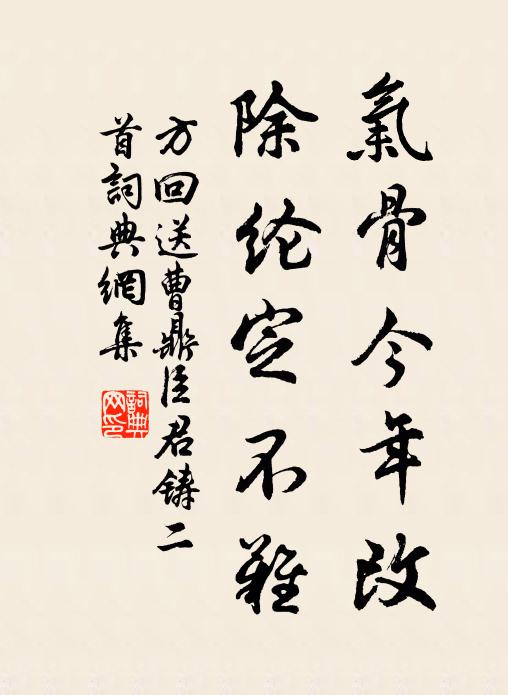 氣骨今年改
除纶定不難
方回送曹鼎臣君铸二
首詞典網集
詞典
网印